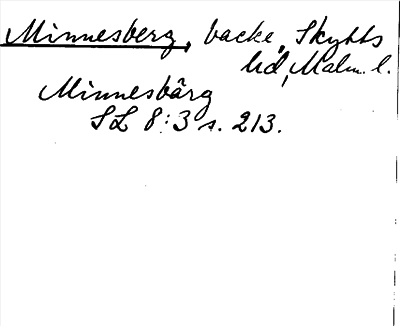 Minnesberg, backe, Skytts
hd, Malm. l.
Minnesbärg
SL 8:3 s. 213.